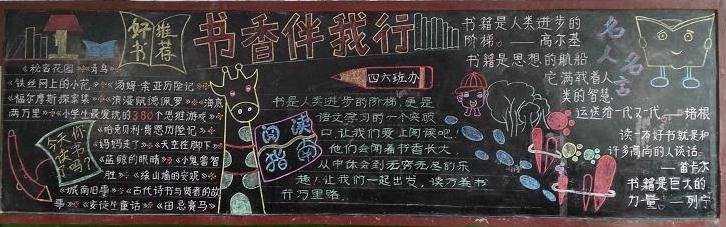 好书推荐
书香伴我行
四六班办
《秘密花园》《青鸟》
《铁丝网上的小花》《汤姆·索亚历险记》
《福尔摩斯探案集》《洛溪佩德佩罗》《海底
两万里》《小学生最爱玩的380个思维游戏》
《哈克贝利·费恩历险记》
《妈妈走了》《天空在脚下》
《蓝鲸的眼睛》《小鬼鲁智
胜》《独山塘的空坝》
《城南旧事》《古代诗书与贤者的故
事》《安徒生童话》《田忌赛马》
今天你读书了吗?
阅读指南
书是人类进步的阶梯,更是
语文学习的一个突破
口,让我们爱上阅读吧!
他们会闻着书香长大
从中体会到无穷无尽的乐
趣!让我们一起出发,读万卷书
行万里路。
名人名言
书籍是人类进步的
阶梯。——高尔基
书籍是思想的航船
它满载着人
类的智慧
运送给一代又一代。——培根
读一本好书就是和
许多高尚的人谈话。
——笛卡尔
书籍是巨大的
力量——列宁